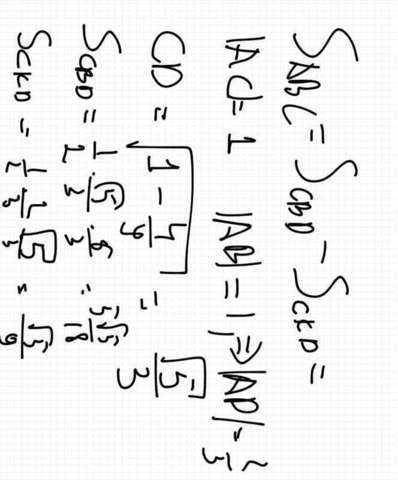 S_ABC = S_CBD - S_CKD =
|AC| = 1 |AB| = 1, ⇒ |AD| =
CD = √(1 - 4/9) = √5/3
S_CBD = 1/2 · √5/3 · 5/3 = 5√5/18
S_CKD = 1/2 · 2/3 · √5/3 = √5/9